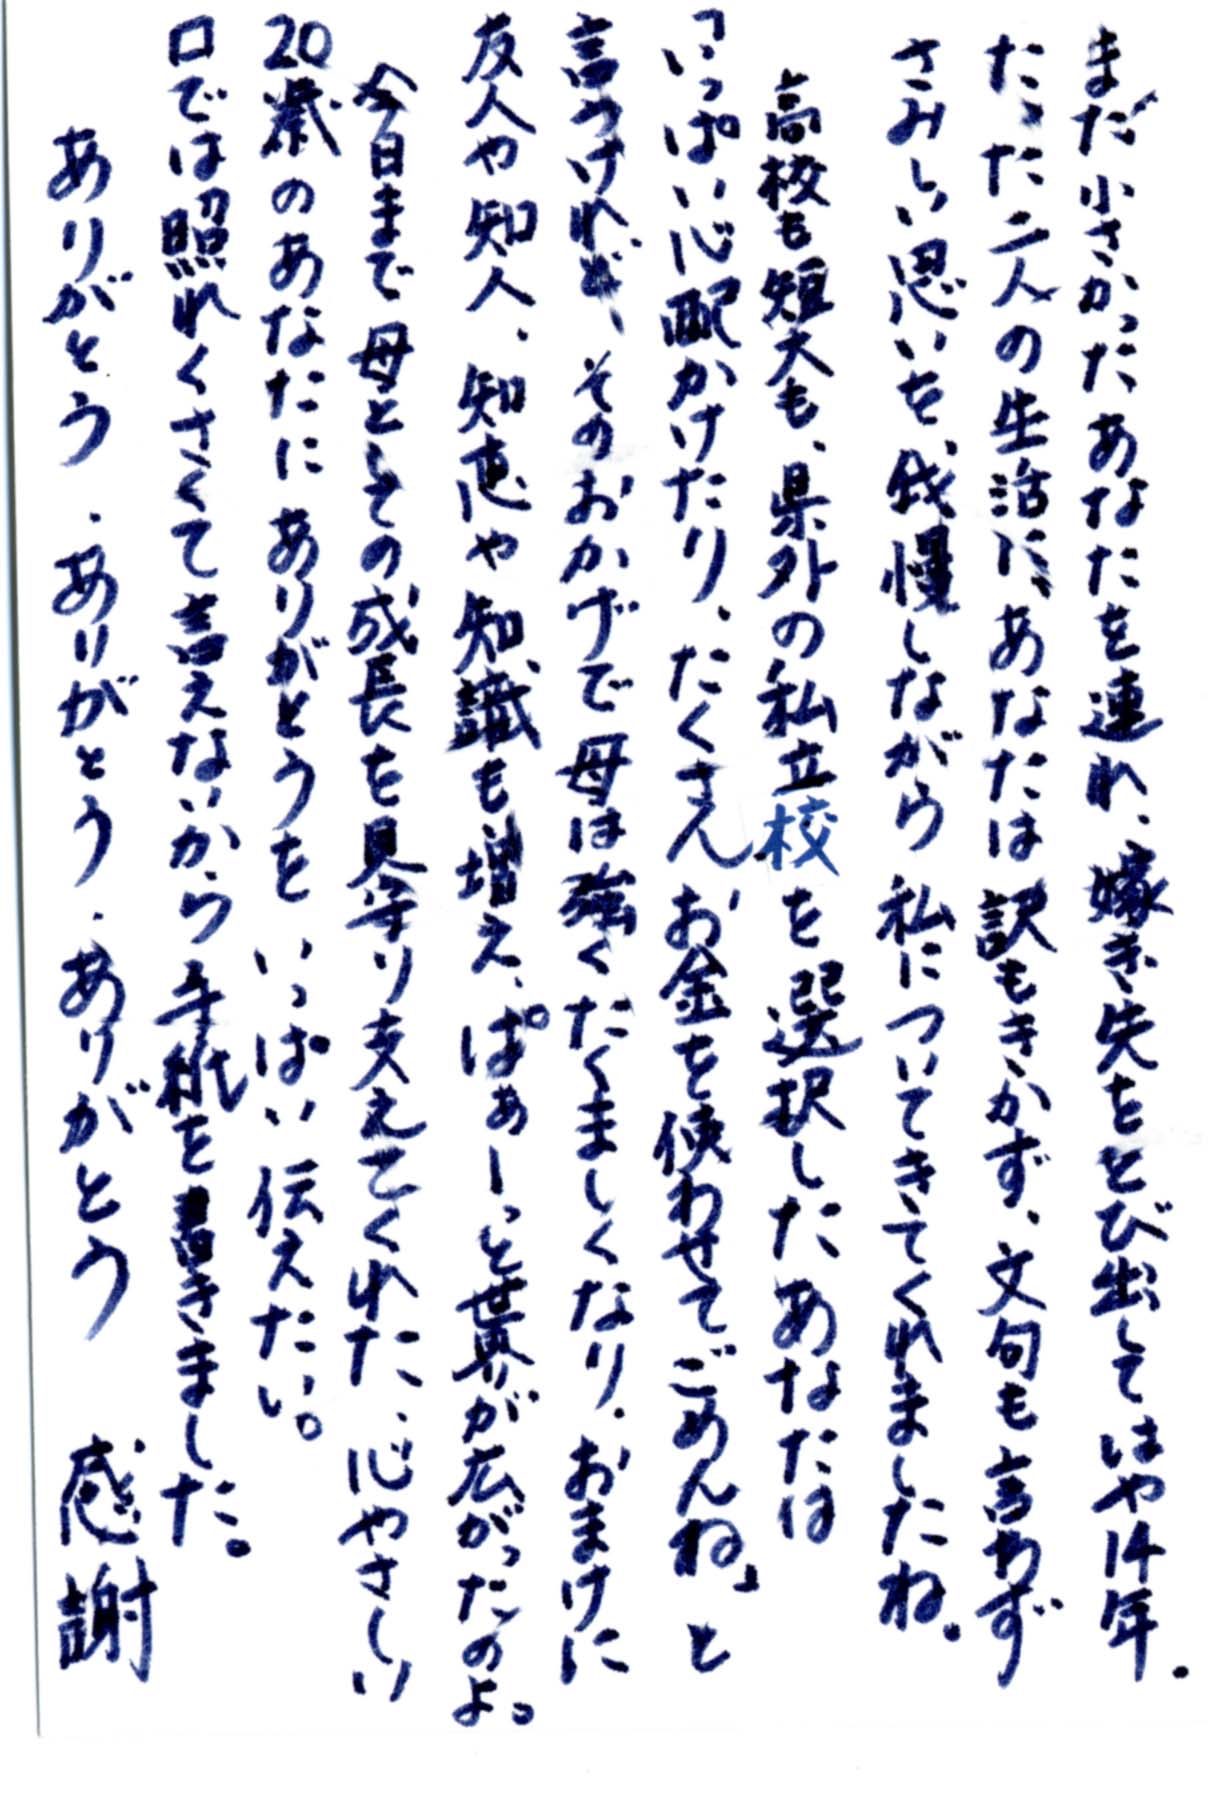 まだ小さかったあなたを連れ、嫁ぎ先をとび出してはや14年。
たった二人の生活に、あなたは訳もきかず、文句も言わず
さみしい思いを、我慢しながら私についてきてくれましたね。
高校も短大も、県外の私立校を選択したあなたは
「いっぱい心配かけたり、たくさんお金を使わせてごめんね」と
言うけれど、そのおかげで母は強くたくましくなり、おまけに
友人や知人、知恵や知識も増え、ぱぁーっと世界が広がったのよ。
今日まで母としての成長を見守り支えてくれた、心やさしい
20歳のあなたにありがとうをいっぱい伝えたい。
口では照れくさくて言えないから手紙を書きました。
ありがとう・ありがとう・ありがとう 感謝